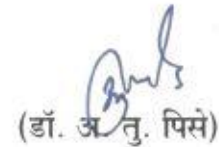 (डॉ. अ. तु. पिसे)